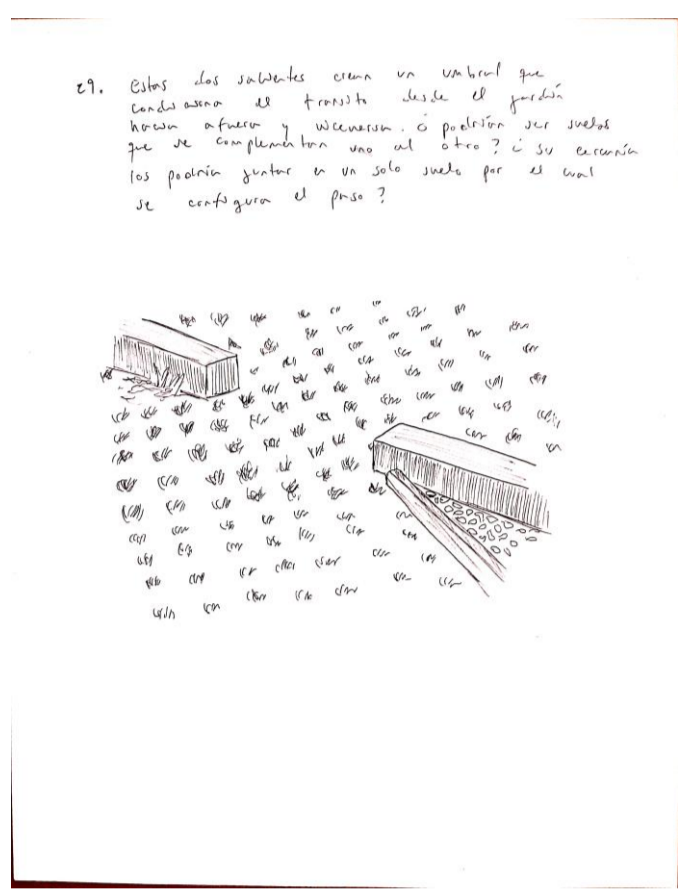 29. Estos dos salientes crean un umbral que
condiciona el transito desde el jardín
hacia afuera y viceversa. o podrían ser suelos
que se complementan uno al otro? ¿ su cercanía
los podría juntar en un solo suelo por el cual
se configura el paso?